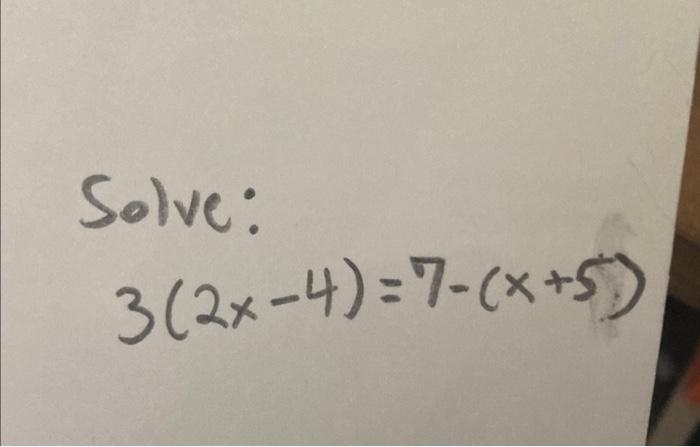 Solve:
3(2x-4)=7-(x+5)